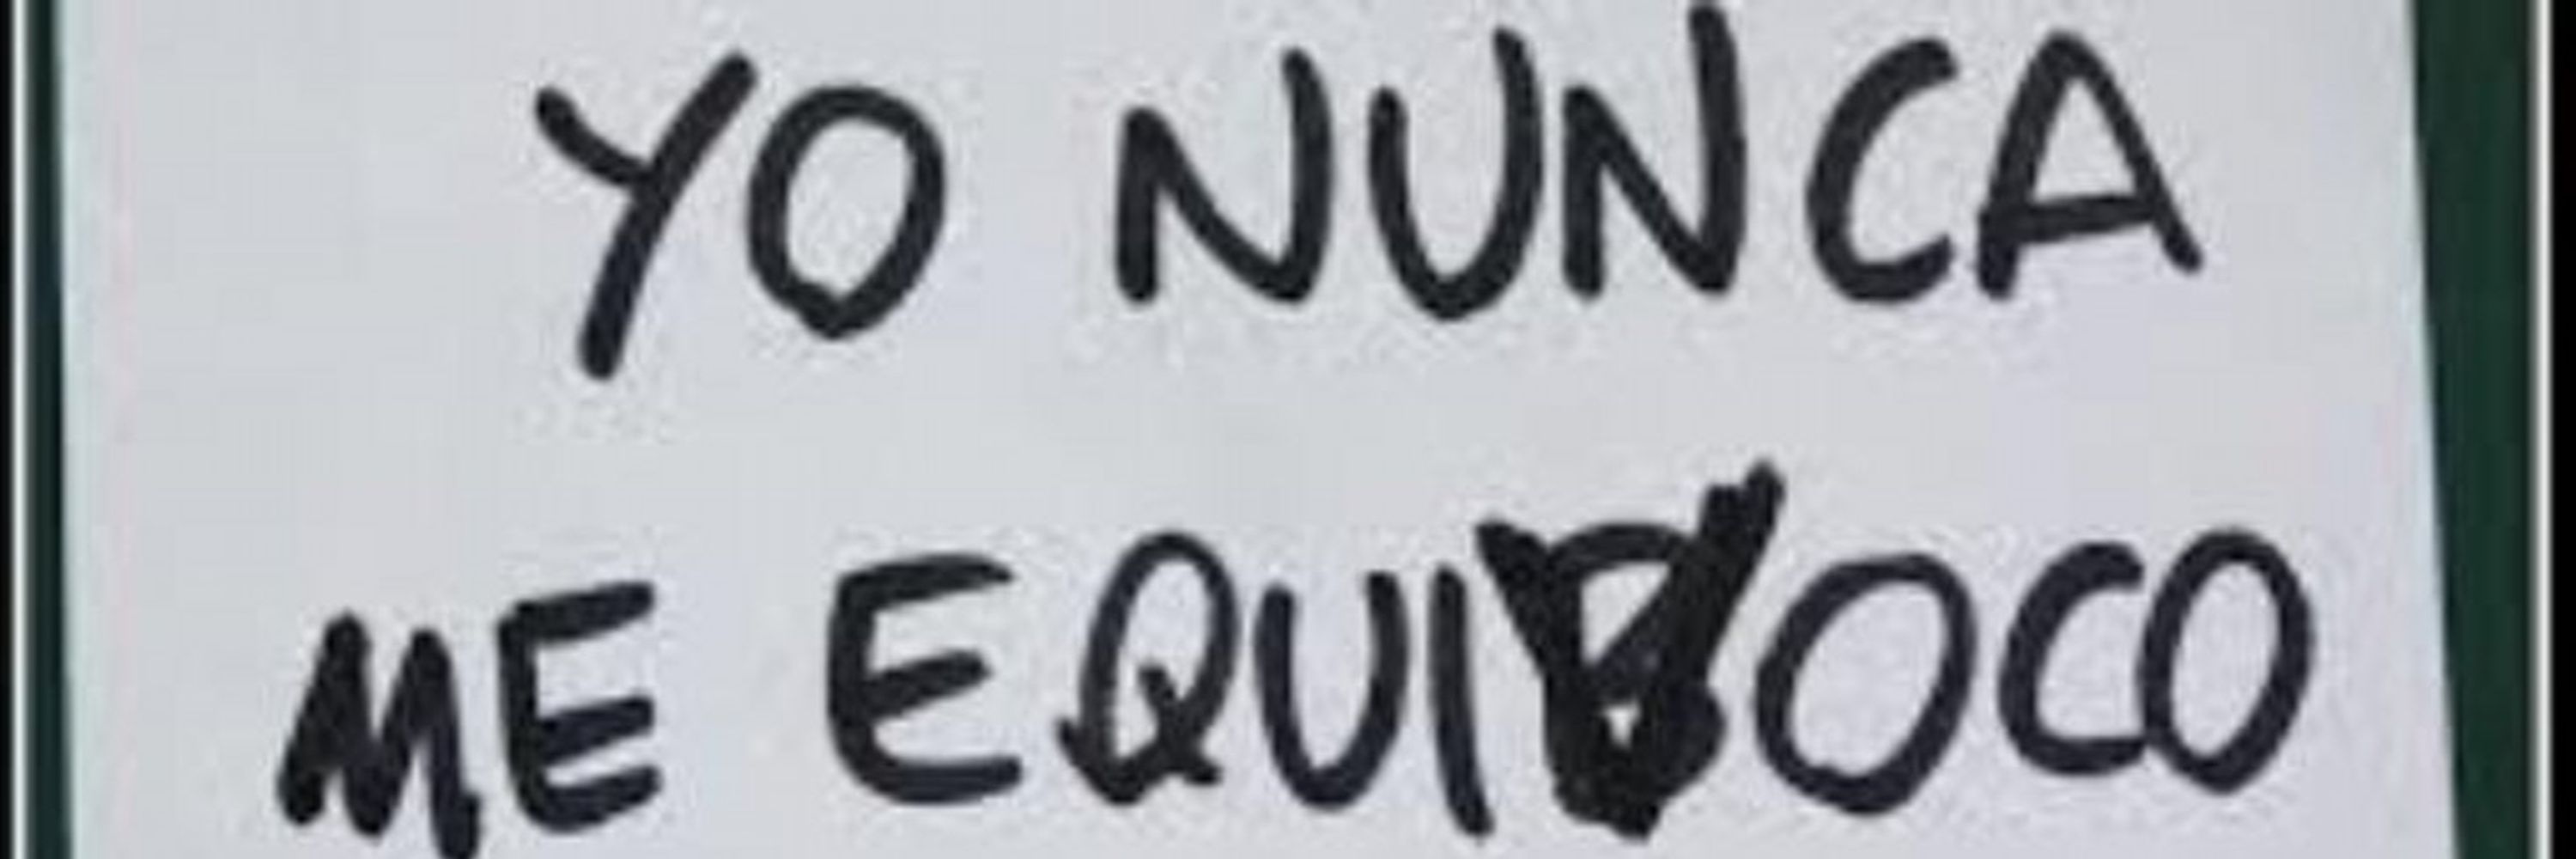 YO NUNCA
ME EQUIVOCO